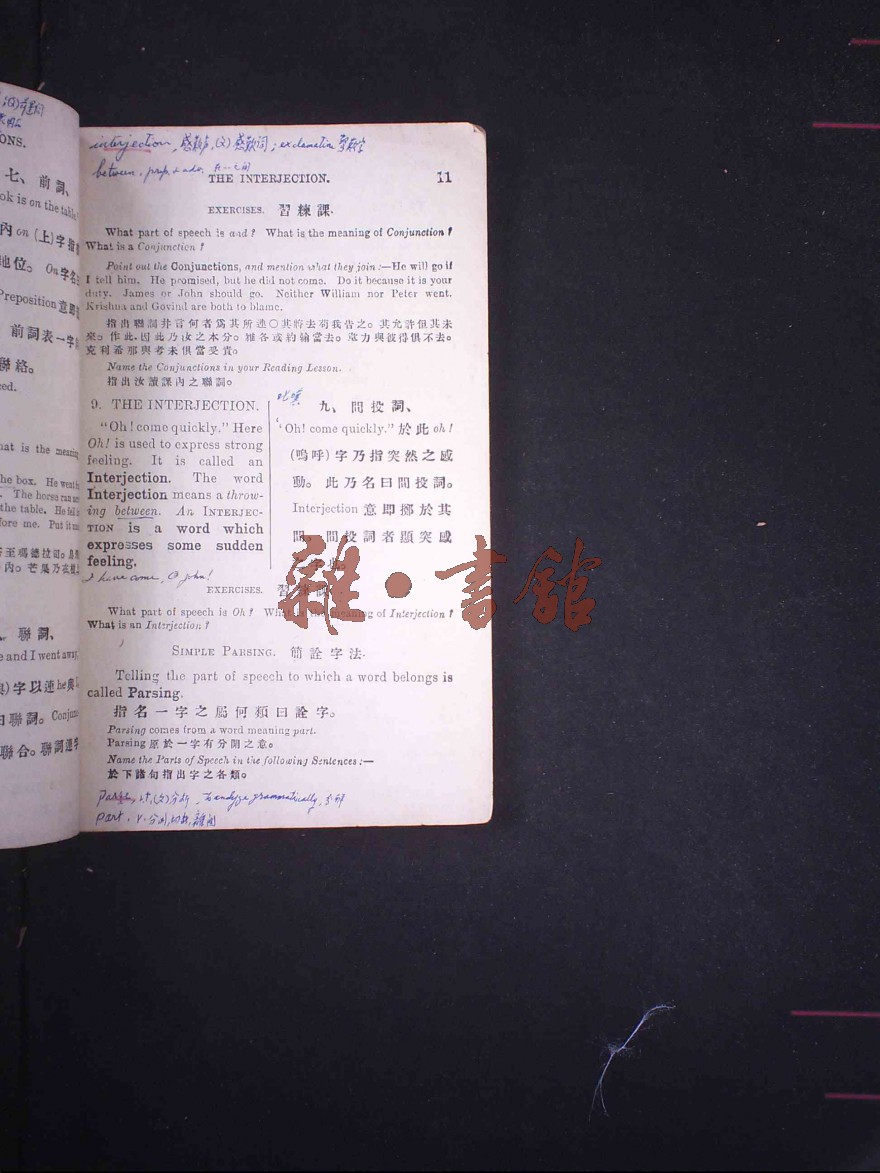 ONS.
七、前詞、
ok is on the table
內 on (上)字指
地位。On字名
Preposition 意即
前詞表一字
聯絡。
ced.
hat is the meaning
he box. He went
The horse ran
the table. He fell
fore me. Put it
內。芒果乃在
聯詞、
e and I went away
字以連 he 與
曰聯詞。Conjunc
聯合。聯詞連字
interjection, 感歎声, (文) 感歎词; exclamation
between, prep. & adv.
THE INTERJECTION. 11
EXERCISES. 習練課.
What part of speech is and? What is the meaning of Conjunction?
What is a Conjunction?
Point out the Conjunctions, and mention what they join:—He will go if
I tell him. He promised, but he did not come. Do it because it is your
duty. James or John should go. Neither William nor Peter went.
Krishna and Govind are both to blame.
指出聯詞并言何者爲其所連○其將去茍我告之。其允許但其未
來。作此因此乃汝之本分。雅各或約翰當去。威力與彼得俱不去。
克利希那與考未俱當受責。
Name the Conjunctions in your Reading Lesson.
指出汝讀課內之聯詞。
9. THE INTERJECTION.
"Oh! come quickly." Here
Oh! is used to express strong
feeling. It is called an
Interjection. The word
Interjection means a throw-
ing between. An INTERJEC-
TION is a word which
expresses some sudden
feeling.
I have come, O John!
九、間投詞、
"Oh! come quickly." 於此 oh!
(嗚呼)字乃指突然之感
動。此乃名曰間投詞。
Interjection 意即擲於其
間。間投詞者顯突感
字也。
雜·書館
EXERCISES. 習練課.
What part of speech is Oh? What is the meaning of Interjection?
What is an Interjection?
SIMPLE PARSING. 簡詮字法.
Telling the part of speech to which a word belongs is
called Parsing.
指名一字之屬何類曰詮字。
Parsing comes from a word meaning part.
Parsing 原於一字有分開之意。
Name the Parts of Speech in the following Sentences:—
於下諸句指出字之各類。
Parse, v.t. (文)分析, to analyze grammatically,
part, v. 分別, 切斷, 離開